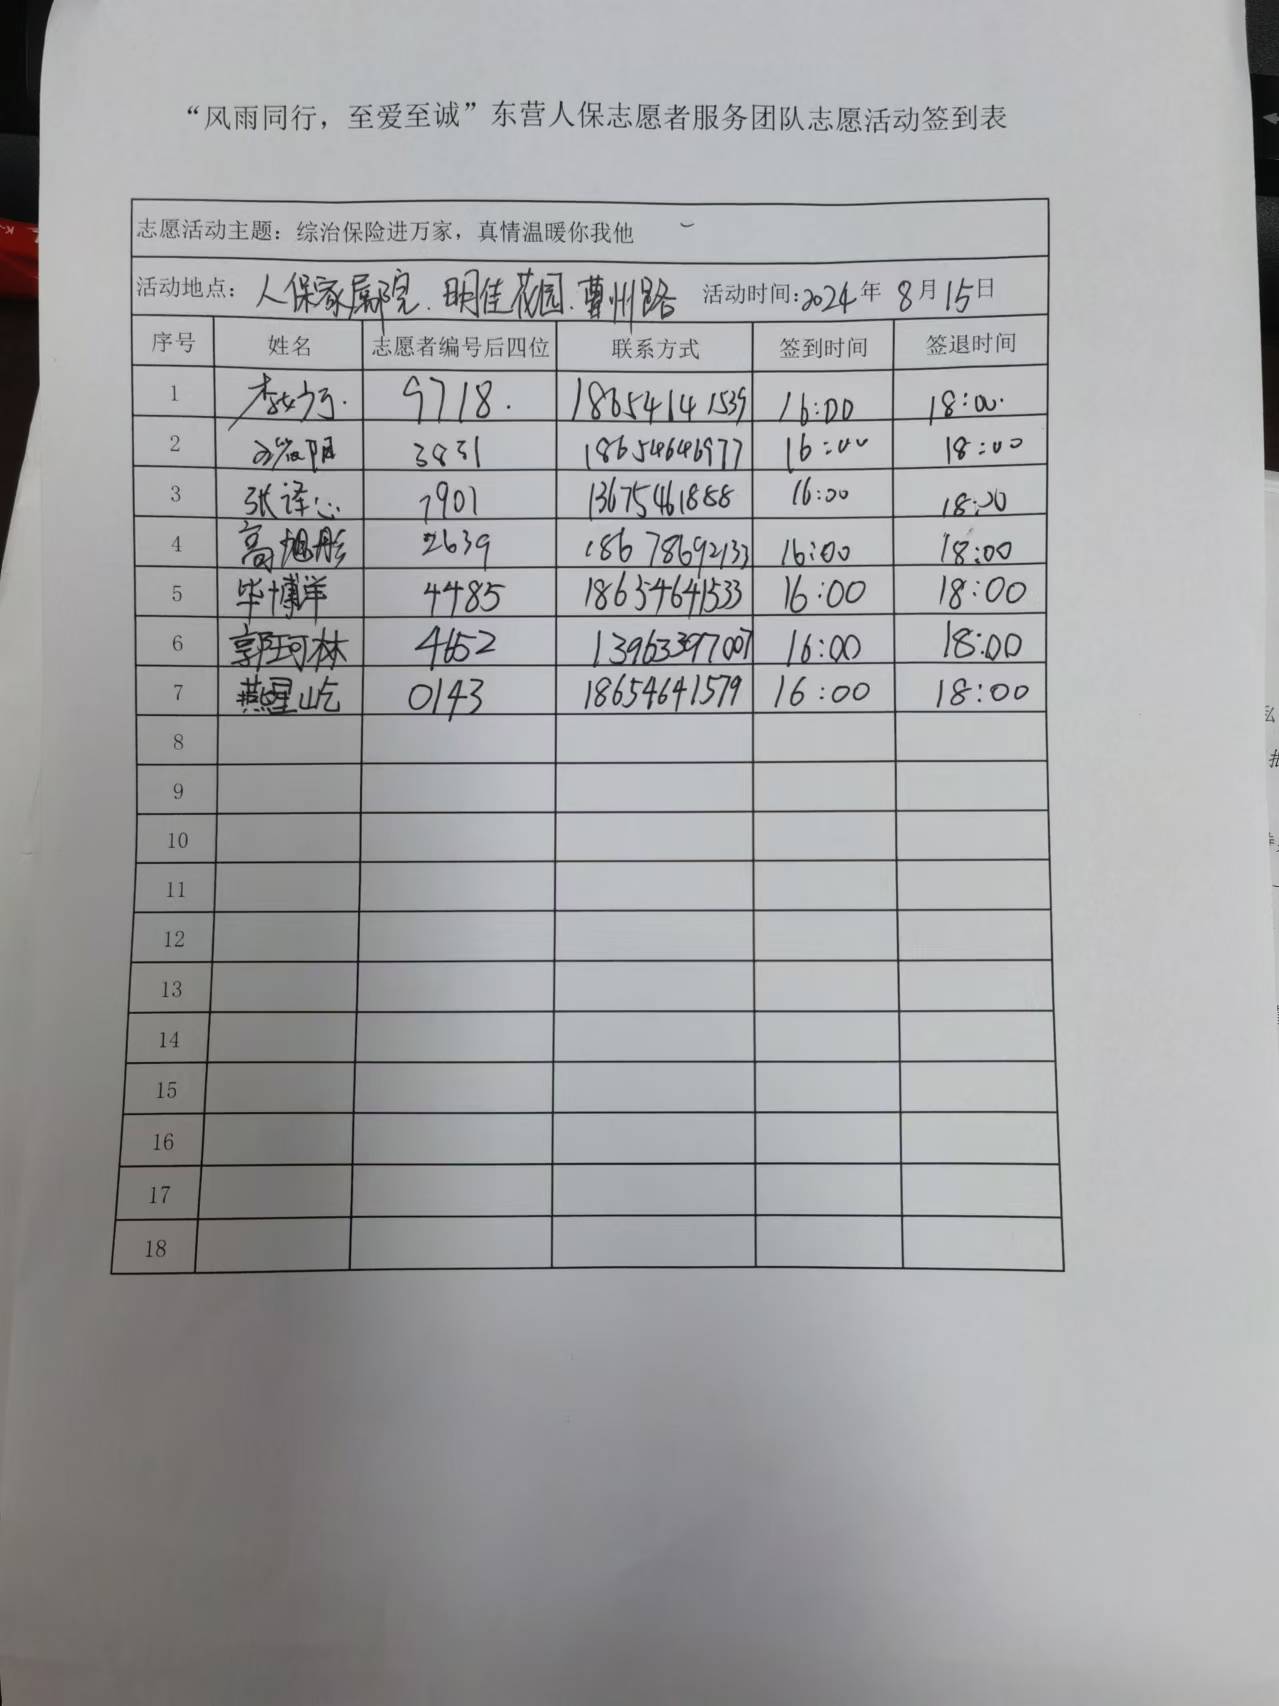 “风雨同行，至爱至诚”东营人保志愿者服务团队志愿活动签到表
志愿活动主题：综治保险进万家，真情温暖你我他
活动地点：人保家属院.明佳花园.曹州路 活动时间：2024年 8月15日
序号 姓名 志愿者编号后四位 联系方式 签到时间 签退时间
1 9718. 18654641539 16:00 18:00.
2 3831 18654646977 16:00 18:00
3 张译心 7901 13675461888 16:00 18:00
4 高旭彤 2639 18678692133 16:00 18:00
5 毕博洋 4485 18654641533 16:00 18:00
6 郭珂林 4652 13963397007 16:00 18:00
7 燕星屹 0143 18654641579 16:00 18:00
8
9
10
11
12
13
14
15
16
17
18